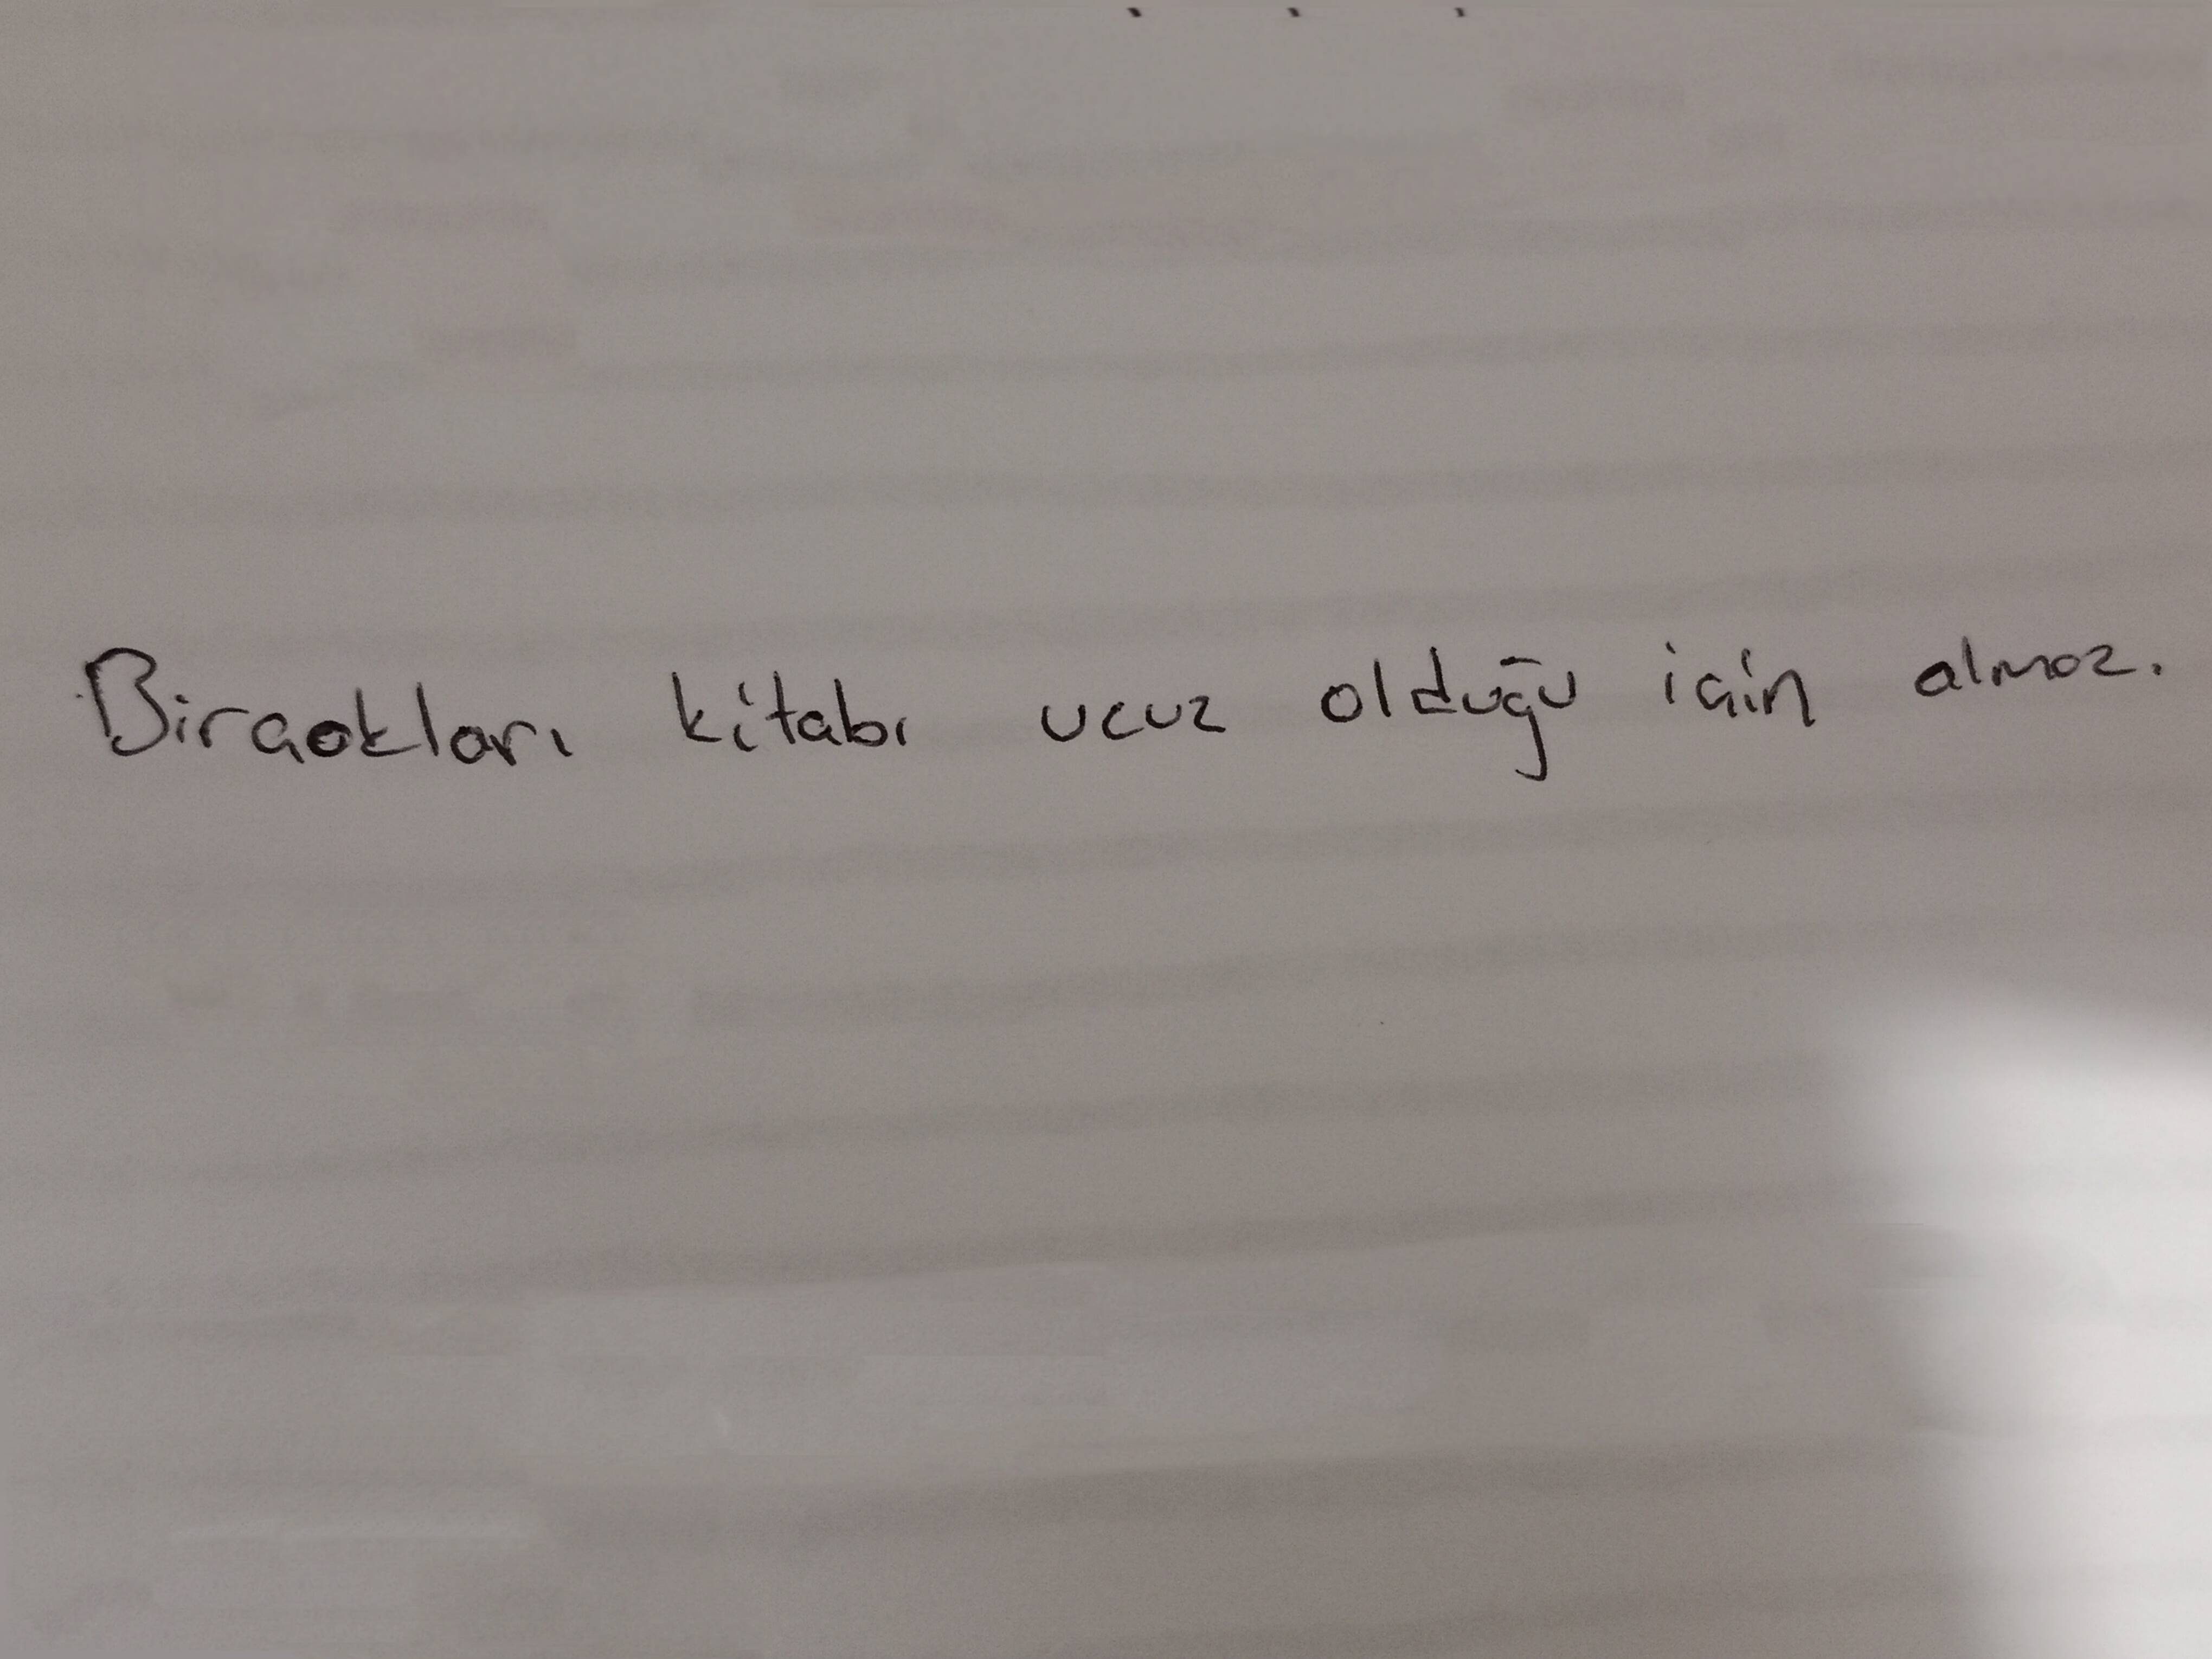 Birçokları kitabı ucuz olduğu için almaz.